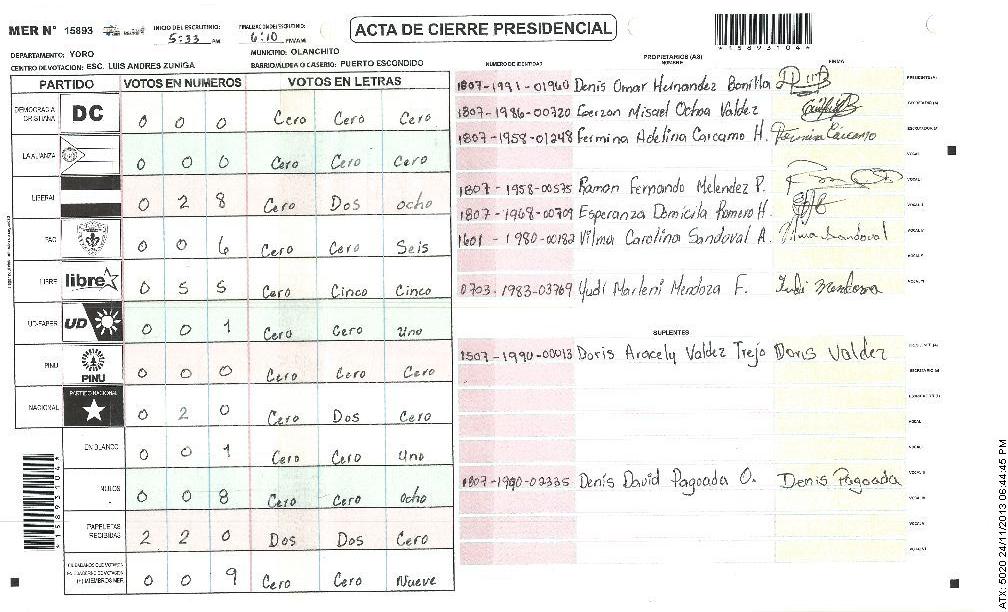 MER N° 15893
INICIO DEL ESCRUTINIO: 5:33 PM
FINALIZACION DE ESCRUTINIO: 6:10
ACTA DE CIERRE PRESIDENCIAL
*1589310 4*
DEPARTAMENTO: YORO
MUNICIPIO: OLANCHITO
CENTRO DE VOTACION: ESC. LUIS ANDRES ZUNIGA
BARRIO/ALDEA O CASERIO: PUERTO ESCONDIDO
PARTIDO VOTOS EN NUMEROS VOTOS EN LETRAS
DEMOCRACIA CRISTIANA DC 0 0 0 Cero Cero Cero
LA ALIANZA 0 0 0 Cero Cero Cero
LIBERAL 0 2 8 Cero Dos ocho
PAC 0 0 6 Cero Cero Seis
LIBRE libre 0 5 5 Cero Cinco Cinco
UD-FAPER UD 0 0 1 Cero Cero Uno
PINU PINU 0 0 0 Cero Cero Cero
NACIONAL PARTIDO NACIONAL 0 2 0 Cero Dos Cero
EN BLANCO 0 0 1 Cero Cero Uno
NULOS 0 0 8 Cero Cero ocho
PAPELETAS RECIBIDAS 2 2 0 Dos Dos Cero
0 0 9 Cero Cero Nueve
PROPIETARIOS (AS)
NUMERO DE IDENTIDAD NOMBRE FIRMA
1807-1991-01960 Denis Omar Hernandez Bonilla PRESIDENTE(A)
1807-1986-00720 Eerzon Misael Ochoa Valdez SECRETARIO (A)
1807-1958-01248 Fermina Adelina Carcamo H. Fermina Carcamo ESCRUTADOR (A)
VOCAL
1807-1958-00575 Ramon Fernando Melendez P. VOCAL
1807-1968-00709 Esperanza Domicila Romero H. VOCAL
1601-1980-00182 Vilma Carolina Sandoval A. Vilma Sandoval VOCAL
VOCAL
0703-1983-03769 Yudi Marleni Mendoza F. Yudi Mendoza VOCAL
SUPLENTES
1507-1990-00013 Doris Aracely Valdez Trejo Doris Valdez
SECRETARIO (A)
VOCAL
VOCAL
1807-1990-02335 Denis David Pagoada O. Denis Pagoada VOCAL
VOCAL
VOCAL
VOCAL
ATX: 5020 24/11/2013 06:44:45 PM